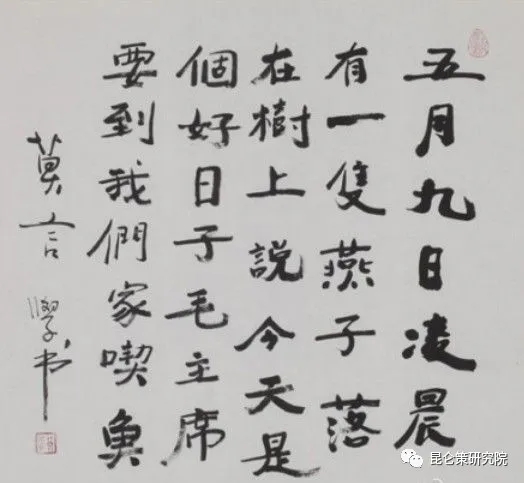 五月九日凌晨
有一隻燕子落
在樹上説今天是
個好日子毛主席
要到我們家喫魚
莫言
昆仑策研究院